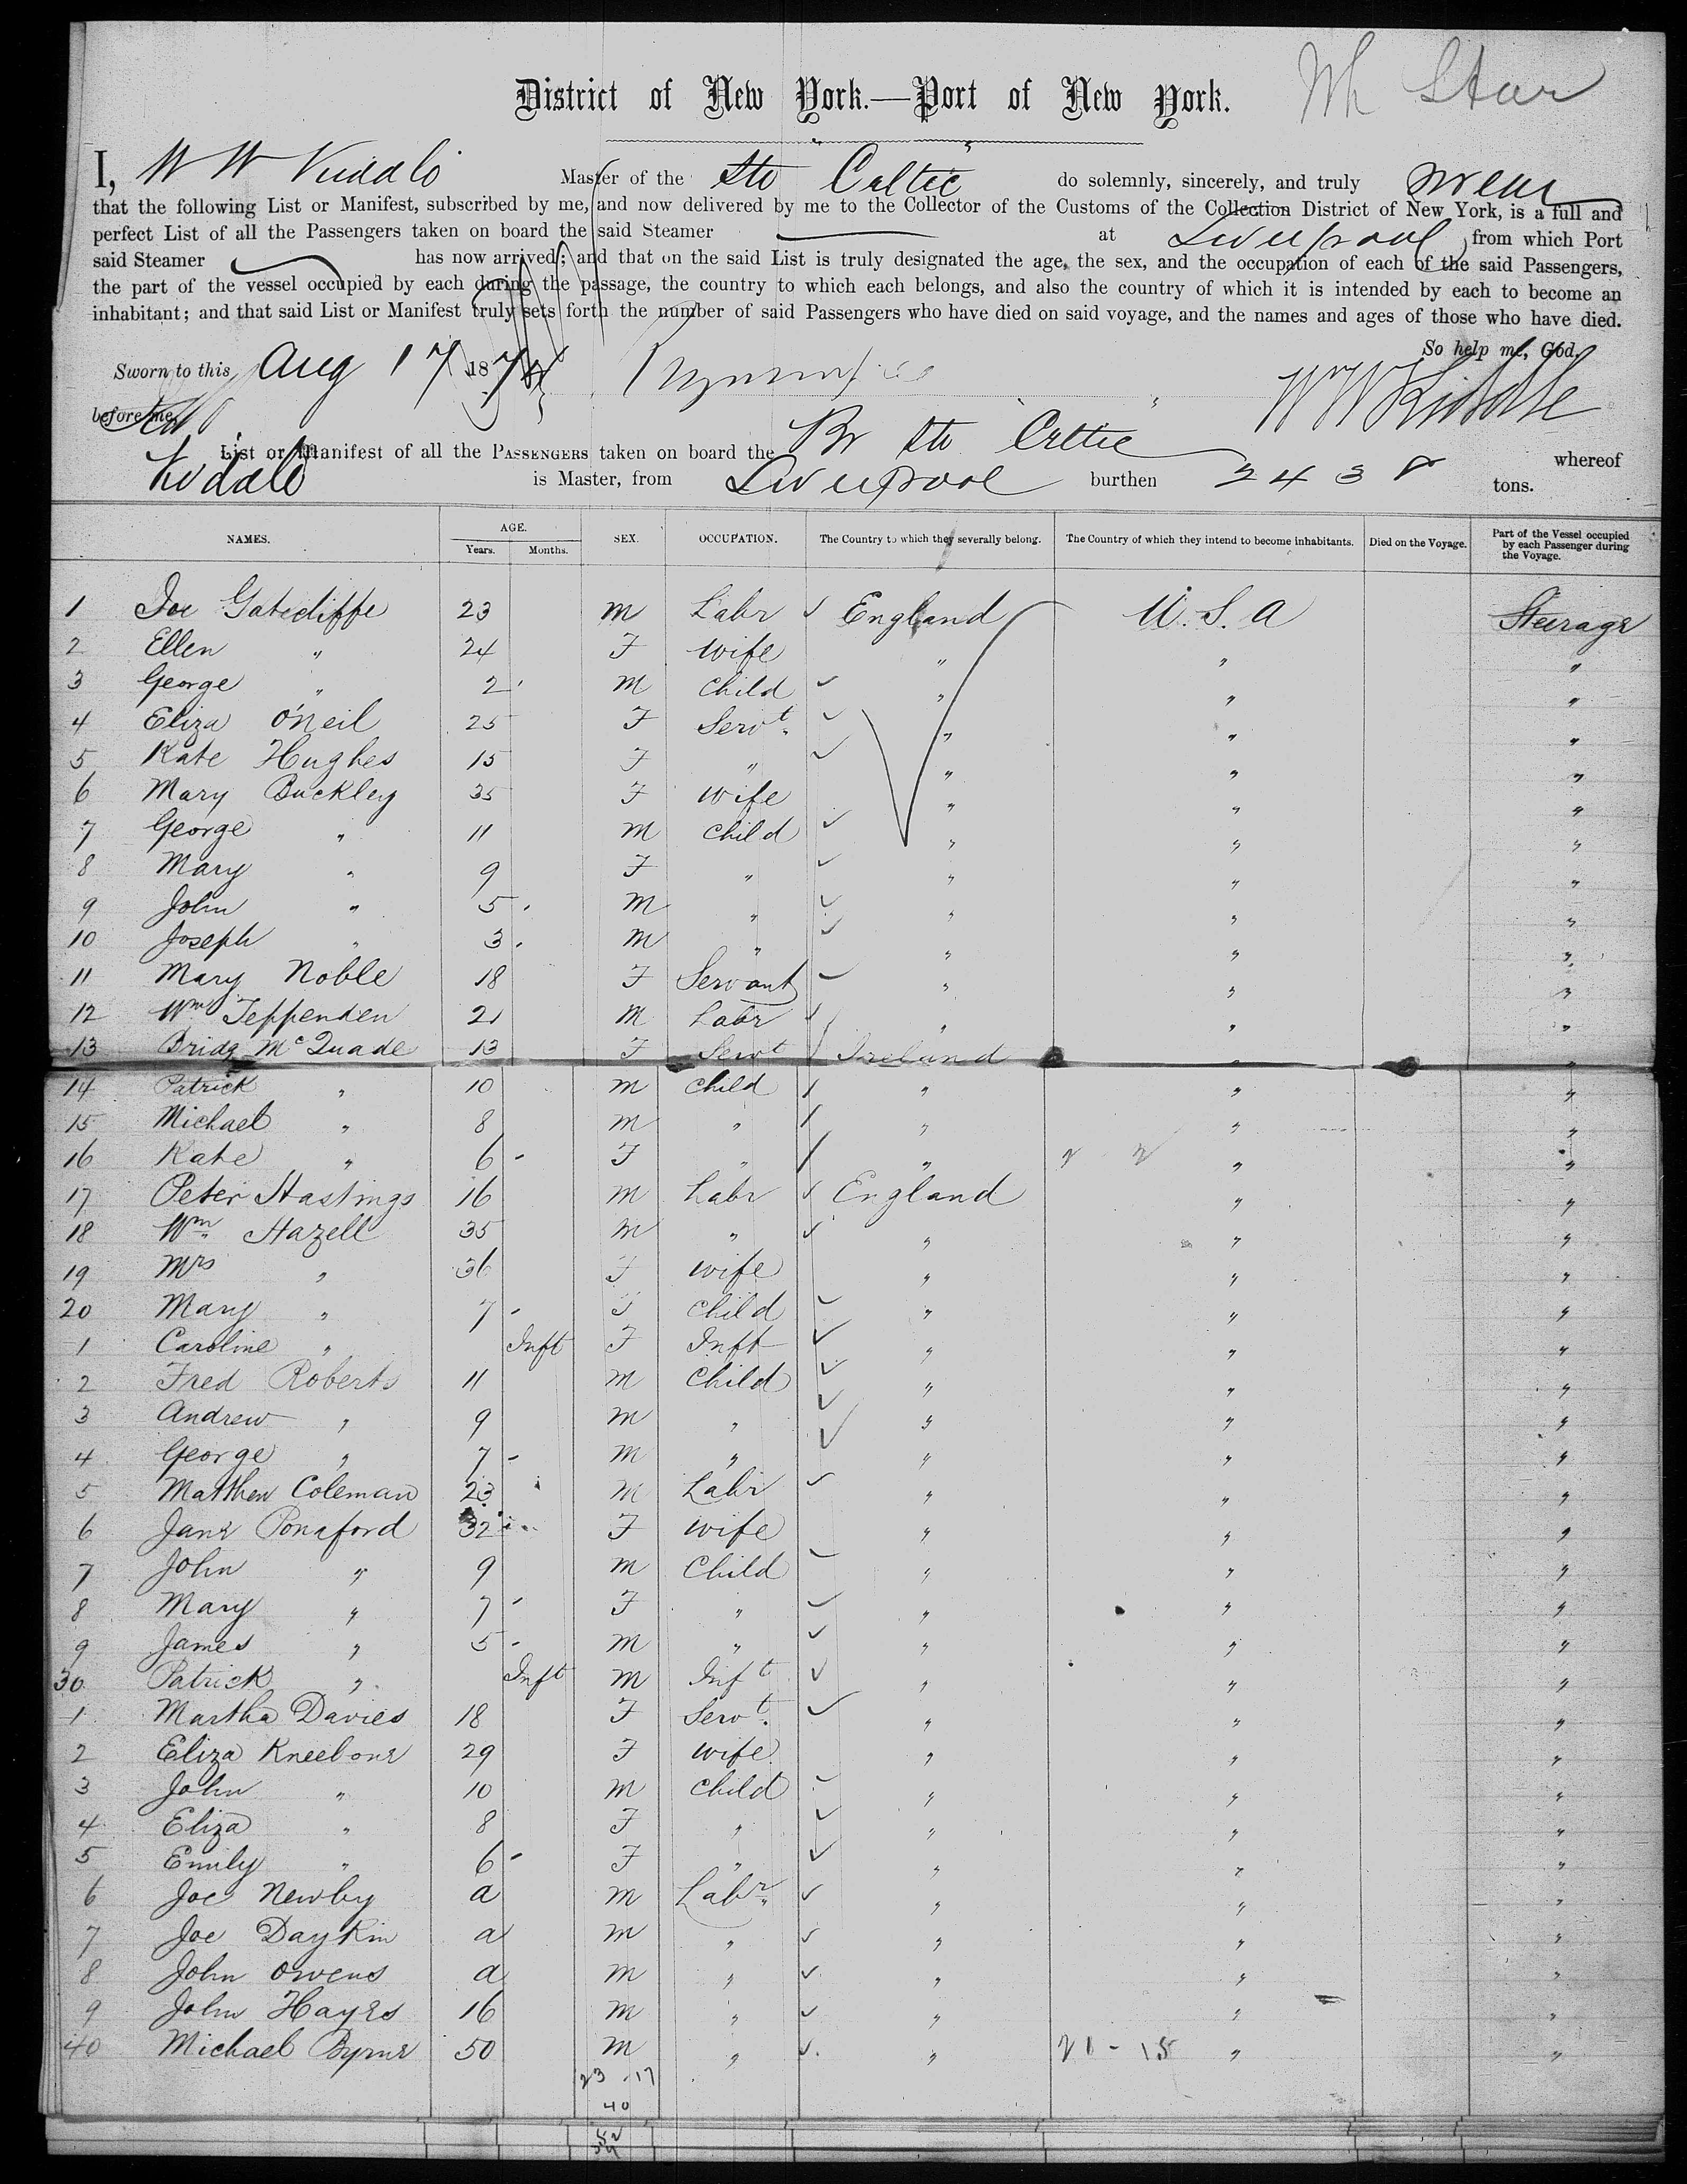 Wh Star
District of New York.—Port of New York.
I, W W Kiddle Master of the Str Celtic do solemnly, sincerely, and truly swear
that the following List or Manifest, subscribed by me, and now delivered by me to the Collector of the Customs of the Collection District of New York, is a full and
perfect List of all the Passengers taken on board the said Steamer at Liverpool, from which Port
said Steamer has now arrived; and that on the said List is truly designated the age, the sex, and the occupation of each of the said Passengers,
the part of the vessel occupied by each during the passage, the country to which each belongs, and also the country of which it is intended by each to become an
inhabitant; and that said List or Manifest truly sets forth the number of said Passengers who have died on said voyage, and the names and ages of those who have died.
So help me, God.
Sworn to this Aug 17 187
before me, W W Kiddle
List or Manifest of all the PASSENGERS taken on board the Br Str Celtic whereof
Kiddle is Master, from Liverpool burthen 2438 tons.
NAMES. AGE. Years. Months. SEX. OCCUPATION. The Country to which they severally belong. The Country of which they intend to become inhabitants. Died on the Voyage. Part of the Vessel occupied by each Passenger during the Voyage.
1 Joe Gatecliffe 23 M Labr England U.S.A Steerage
2 Ellen " 24 F Wife " " "
3 George " 2 M Child " " "
4 Eliza O'Neil 25 F Servt " " "
5 Kate Hughes 15 F " " " "
6 Mary Buckley 35 F Wife " " "
7 George " 11 M Child " " "
8 Mary " 9 F " " " "
9 John " 5 M " " " "
10 Joseph " 3 M " " " "
11 Mary Noble 18 F Servant " " "
12 Wm Teppenden 21 M Labr " " "
13 Bridg McQuade 13 F Servt Ireland " "
14 Patrick " 10 M Child " " "
15 Michael " 8 M " " " "
16 Kate " 6 F " " " "
17 Peter Hastings 16 M Labr England " "
18 Wm Hazell 35 M " " " "
19 Mrs " 36 F Wife " " "
20 Mary " 7 F Child " " "
1 Caroline " Inft F Inft " " "
2 Fred Roberts 11 M Child " " "
3 Andrew " 9 M " " " "
4 George " 7 M " " " "
5 Matthew Coleman 23 M Labr " " "
6 Jane Ponaford 32 F Wife " " "
7 John " 9 M Child " " "
8 Mary " 7 F " " " "
9 James " 5 M " " " "
30 Patrick " Inft M Inft " " "
1 Martha Davies 18 F Servt. " " "
2 Eliza Kneebone 29 F Wife " " "
3 John " 10 M Child " " "
4 Eliza " 8 F " " " "
5 Emily " 6 F " " " "
6 Joe Newby a M Labr " " "
7 Joe Daykin a M " " " "
8 John Owens a M " " " "
9 John Hayes 16 M " " " "
40 Michael Byrne 50 M " " 21-15 " "
23 17
40